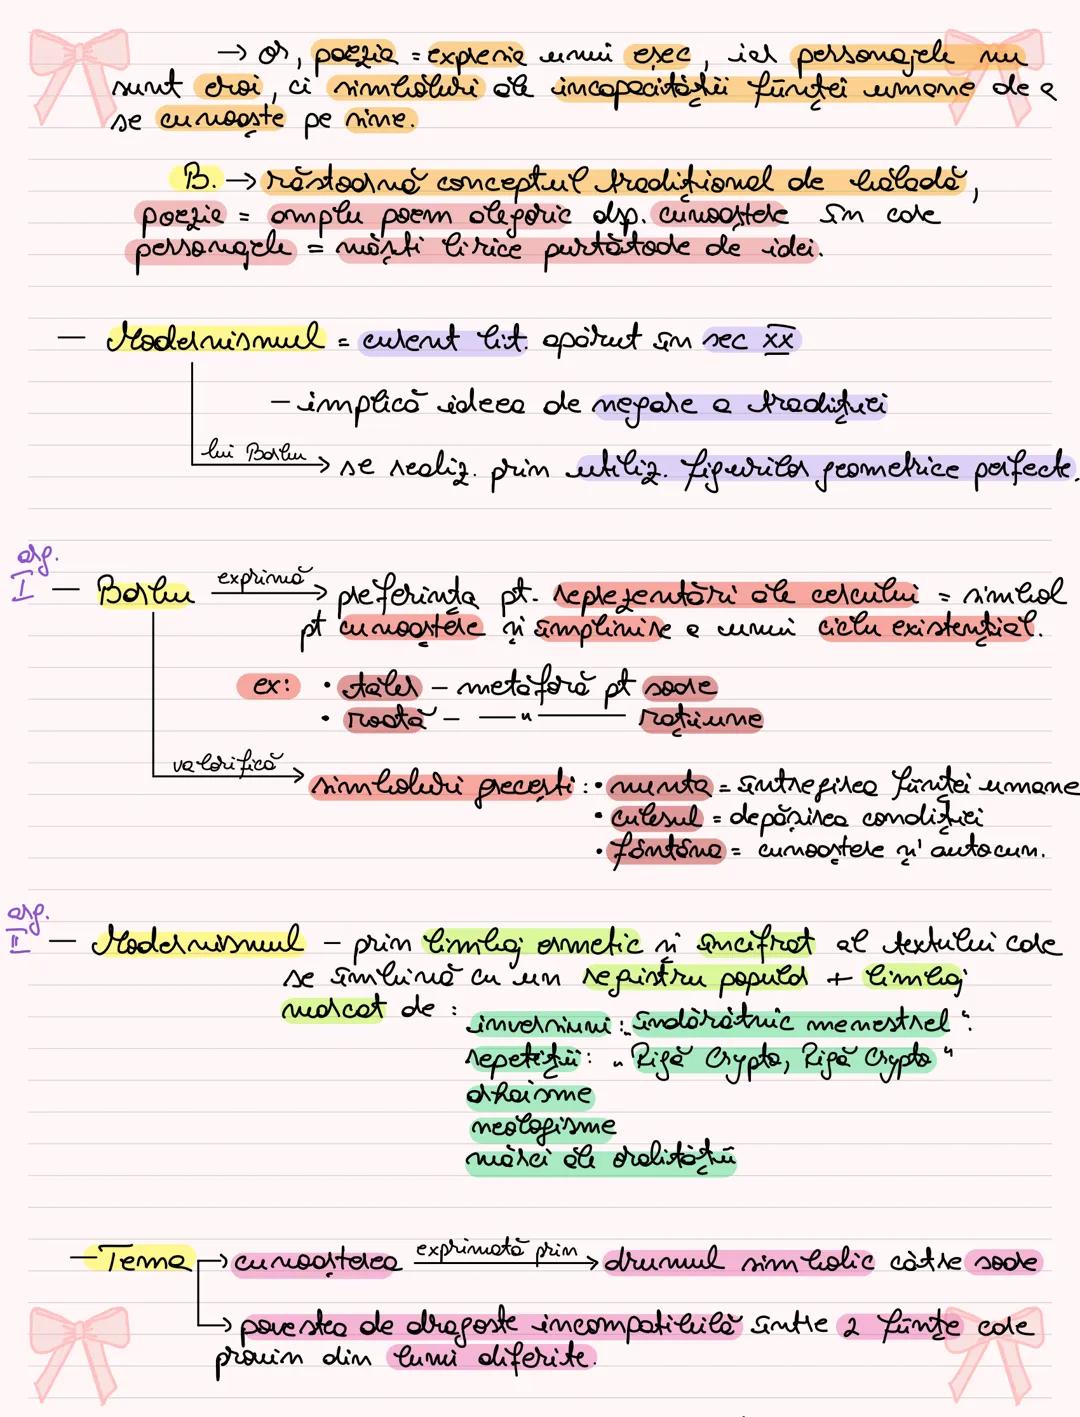 → or, poezia = expresia unui eșec, iar personajele nu
sunt eroi, ci simboluri ale incapacității ființei umane de a
se cunoaște pe sine.
B. → răstoarnă conceptul tradițional de baladă,
poezie = amplu poem alegoric dsp. cunoaștere în care
personajele = măști lirice purtătoare de idei.
— Modernismul = curent lit. apărut în sec XX
- implică ideea de negare a tradiției
lui Barbu → se realiz. prin utiliz. figurilor geometrice perfecte.
asp.
I — Barbu exprimă → preferința pt. reprezentări ale cercului = simbol
pt cunoaștere și împlinire a unui ciclu existențial.
ex: • taler – metaforă pt soare
• roată – —"— rațiune
valorifică → simboluri grecești: • nunta = întregirea ființei umane
• culesul = depășirea condiției
• fântâna = cunoaștere și autocun.
asp.
II — Modernismul – prin limbaj ermetic și încifrat al textului care
se îmbină cu un registru popular + limbaj
marcat de :
inversiuni: „îndărătnic menestrel".
repetiții: „Rigă Crypto, Rigă Crypto"
arhaisme
neologisme
mărci ale oralității
— Tema → cunoașterea exprimată prin → drumul simbolic către soare
→ povestea de dragoste incompatibilă între 2 ființe care
provin din lumi diferite.